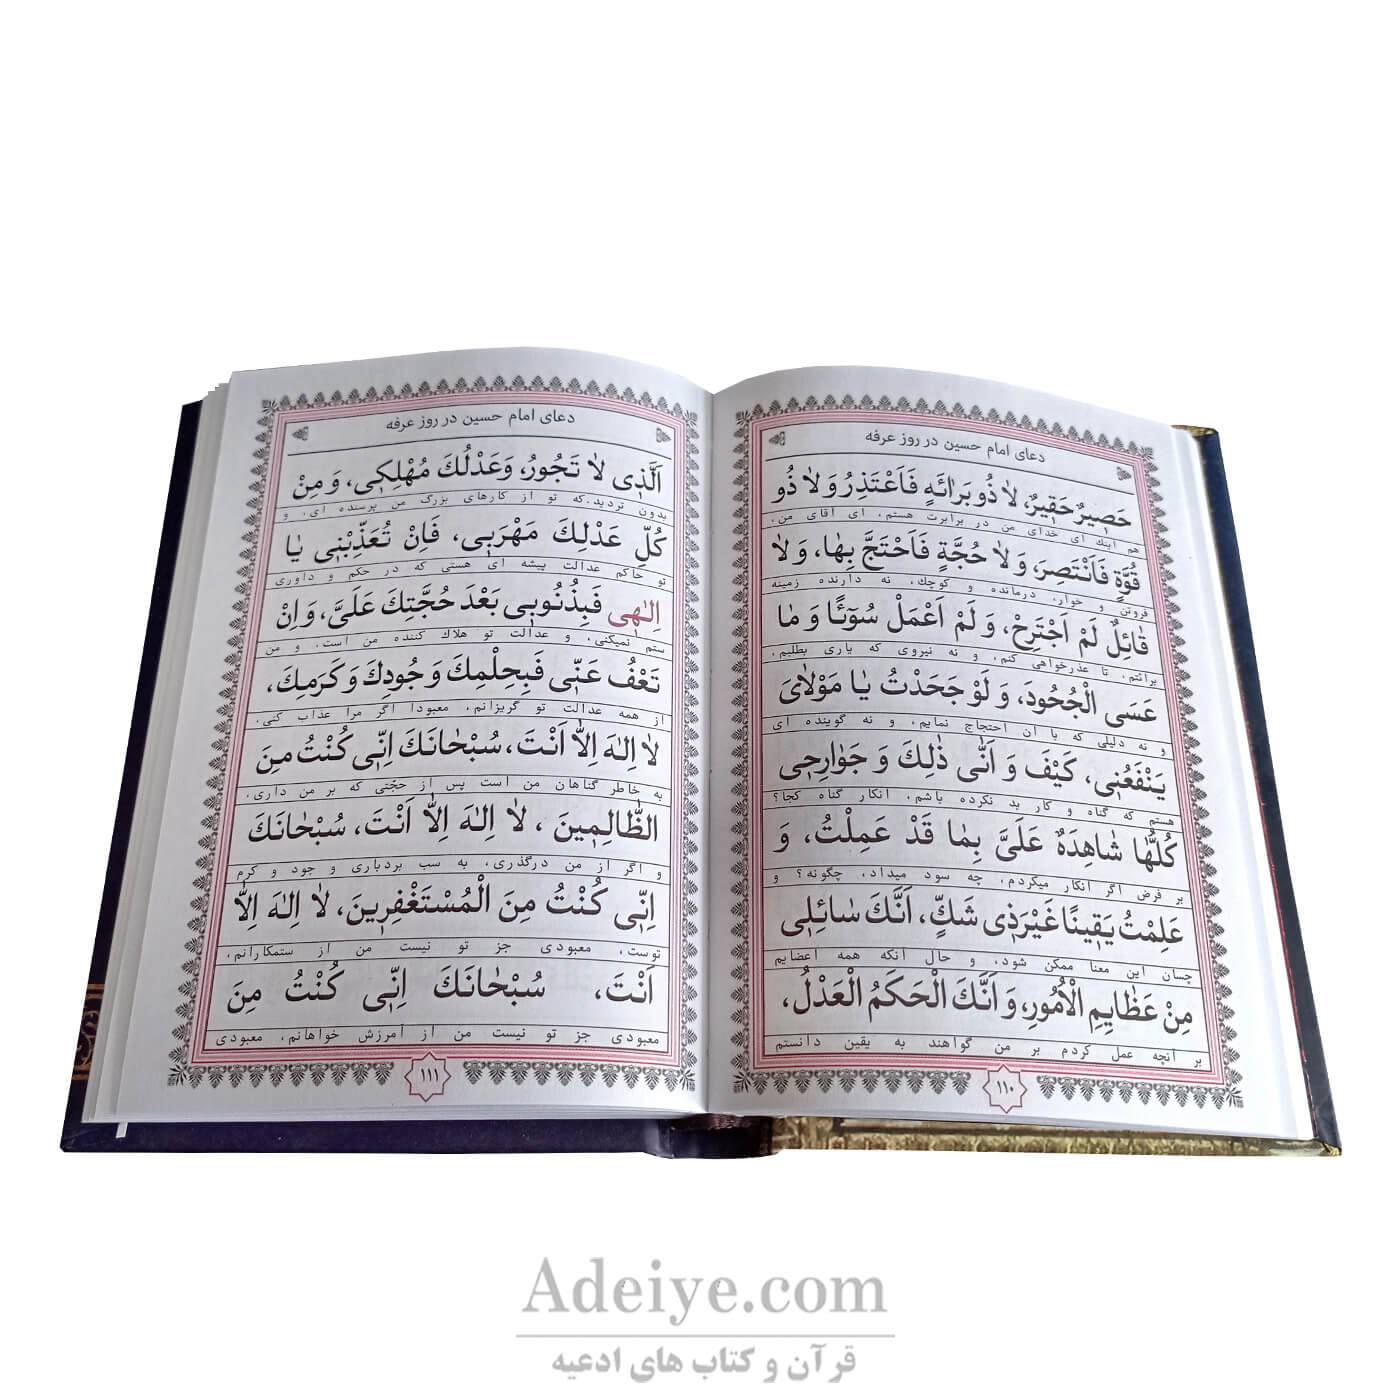 دعای امام حسین در روز عرفه
حَصِیرٌ حَقِیرٌ، لاٰ ذُو بَرٰائَهٍ فَاَعْتَذِرُ وَ لاٰ ذُو
هم اینك ای خدای من در برابرت هستم، ای آقای من،
قُوَّةٍ فَاَنْتَصِرَ، وَ لاٰ حُجَّةٍ فَاَحْتَجَّ بِهٰا، وَ لاٰ
فروتن و خوار، درمانده و كوچك، نه دارنده زمینه
قٰائِلٌ لَمْ اَجْتَرِحْ، وَ لَمْ اَعْمَلْ سُوٓئًا وَ مٰا
برائتم، تا عذرخواهی كنم، و نه نیروی كه یاری بطلبم،
عَسَی الْجُحُودَ، وَ لَوْ جَحَدْتُ یٰا مَوْلاٰیَ
و نه دلیلی كه با آن احتجاج نمایم، و نه گوینده ای
یَنْفَعُنِی، كَیْفَ وَ اَنّٰی ذٰلِكَ وَ جَوٰارِحِی
هستم كه گناه و كار بد نكرده باشم، انكار گناه كجا؟
كُلُّهٰا شٰاهِدَهٌ عَلَیَّ بِمٰا قَدْ عَمِلْتُ، وَ
بر فرض اگر انكار میكردم، چه سود میداد، چگونه؟ و
عَلِمْتُ یَقِینًا غَیْرَ ذِی شَكٍّ، اَنَّكَ سٰائِلِی
چسان این معنا ممكن شود، و حال آنكه همه اعضایم
مِنْ عَظٰایِمِ الْاُمُورِ، وَ اَنَّكَ الْحَكَمُ الْعَدْلُ،
بر آنچه عمل كردم بر من گواهند به یقین دانستم
۱۱۰
دعای امام حسین در روز عرفه
اَلَّذِی لاٰ تَجُورُ، وَ عَدْلُكَ مُهْلِكِی، وَ مِنْ
بدون تردید.كه تو از كارهای بزرگ من پرسنده ای، و
كُلِّ عَدْلِكَ مَهْرَبِی، فَاِنْ تُعَذِّبْنِی یٰا
تو حاكم عدالت پیشه ای هستی كه در حكم و داوری
اِلٰهِی فَبِذُنُوبِی بَعْدَ حُجَّتِكَ عَلَیَّ، وَ اِنْ
ستم نمیكنی، و عدالت تو هلاك كننده من است. و من
تَعْفُ عَنِّی فَبِحِلْمِكَ وَ جُودِكَ وَ كَرَمِكَ،
از همه عدالت تو گریزانم، معبودا اگر مرا عذاب كنی،
لاٰ اِلٰهَ اِلاّٰ اَنْتَ، سُبْحٰانَكَ اِنِّی كُنْتُ مِنَ
به خاطر گناهان من است پس از حجّتی كه بر من داری،
الظّٰالِمِینَ ، لاٰ اِلٰهَ اِلاّٰ اَنْتَ، سُبْحٰانَكَ
و اگر از من درگذری، به سب بردباری و جود و كرم
اِنِّی كُنْتُ مِنَ الْمُسْتَغْفِرِینَ، لاٰ اِلٰهَ اِلاّٰ
توست، معبودی جز تو نیست من از ستمكارانم،
اَنْتَ، سُبْحٰانَكَ اِنِّی كُنْتُ مِنَ
معبودی جز تو نیست من از آمرزش خواهانم، معبودی
۱۱۱
Adeiye.com
قرآن و كتاب های ادعیه